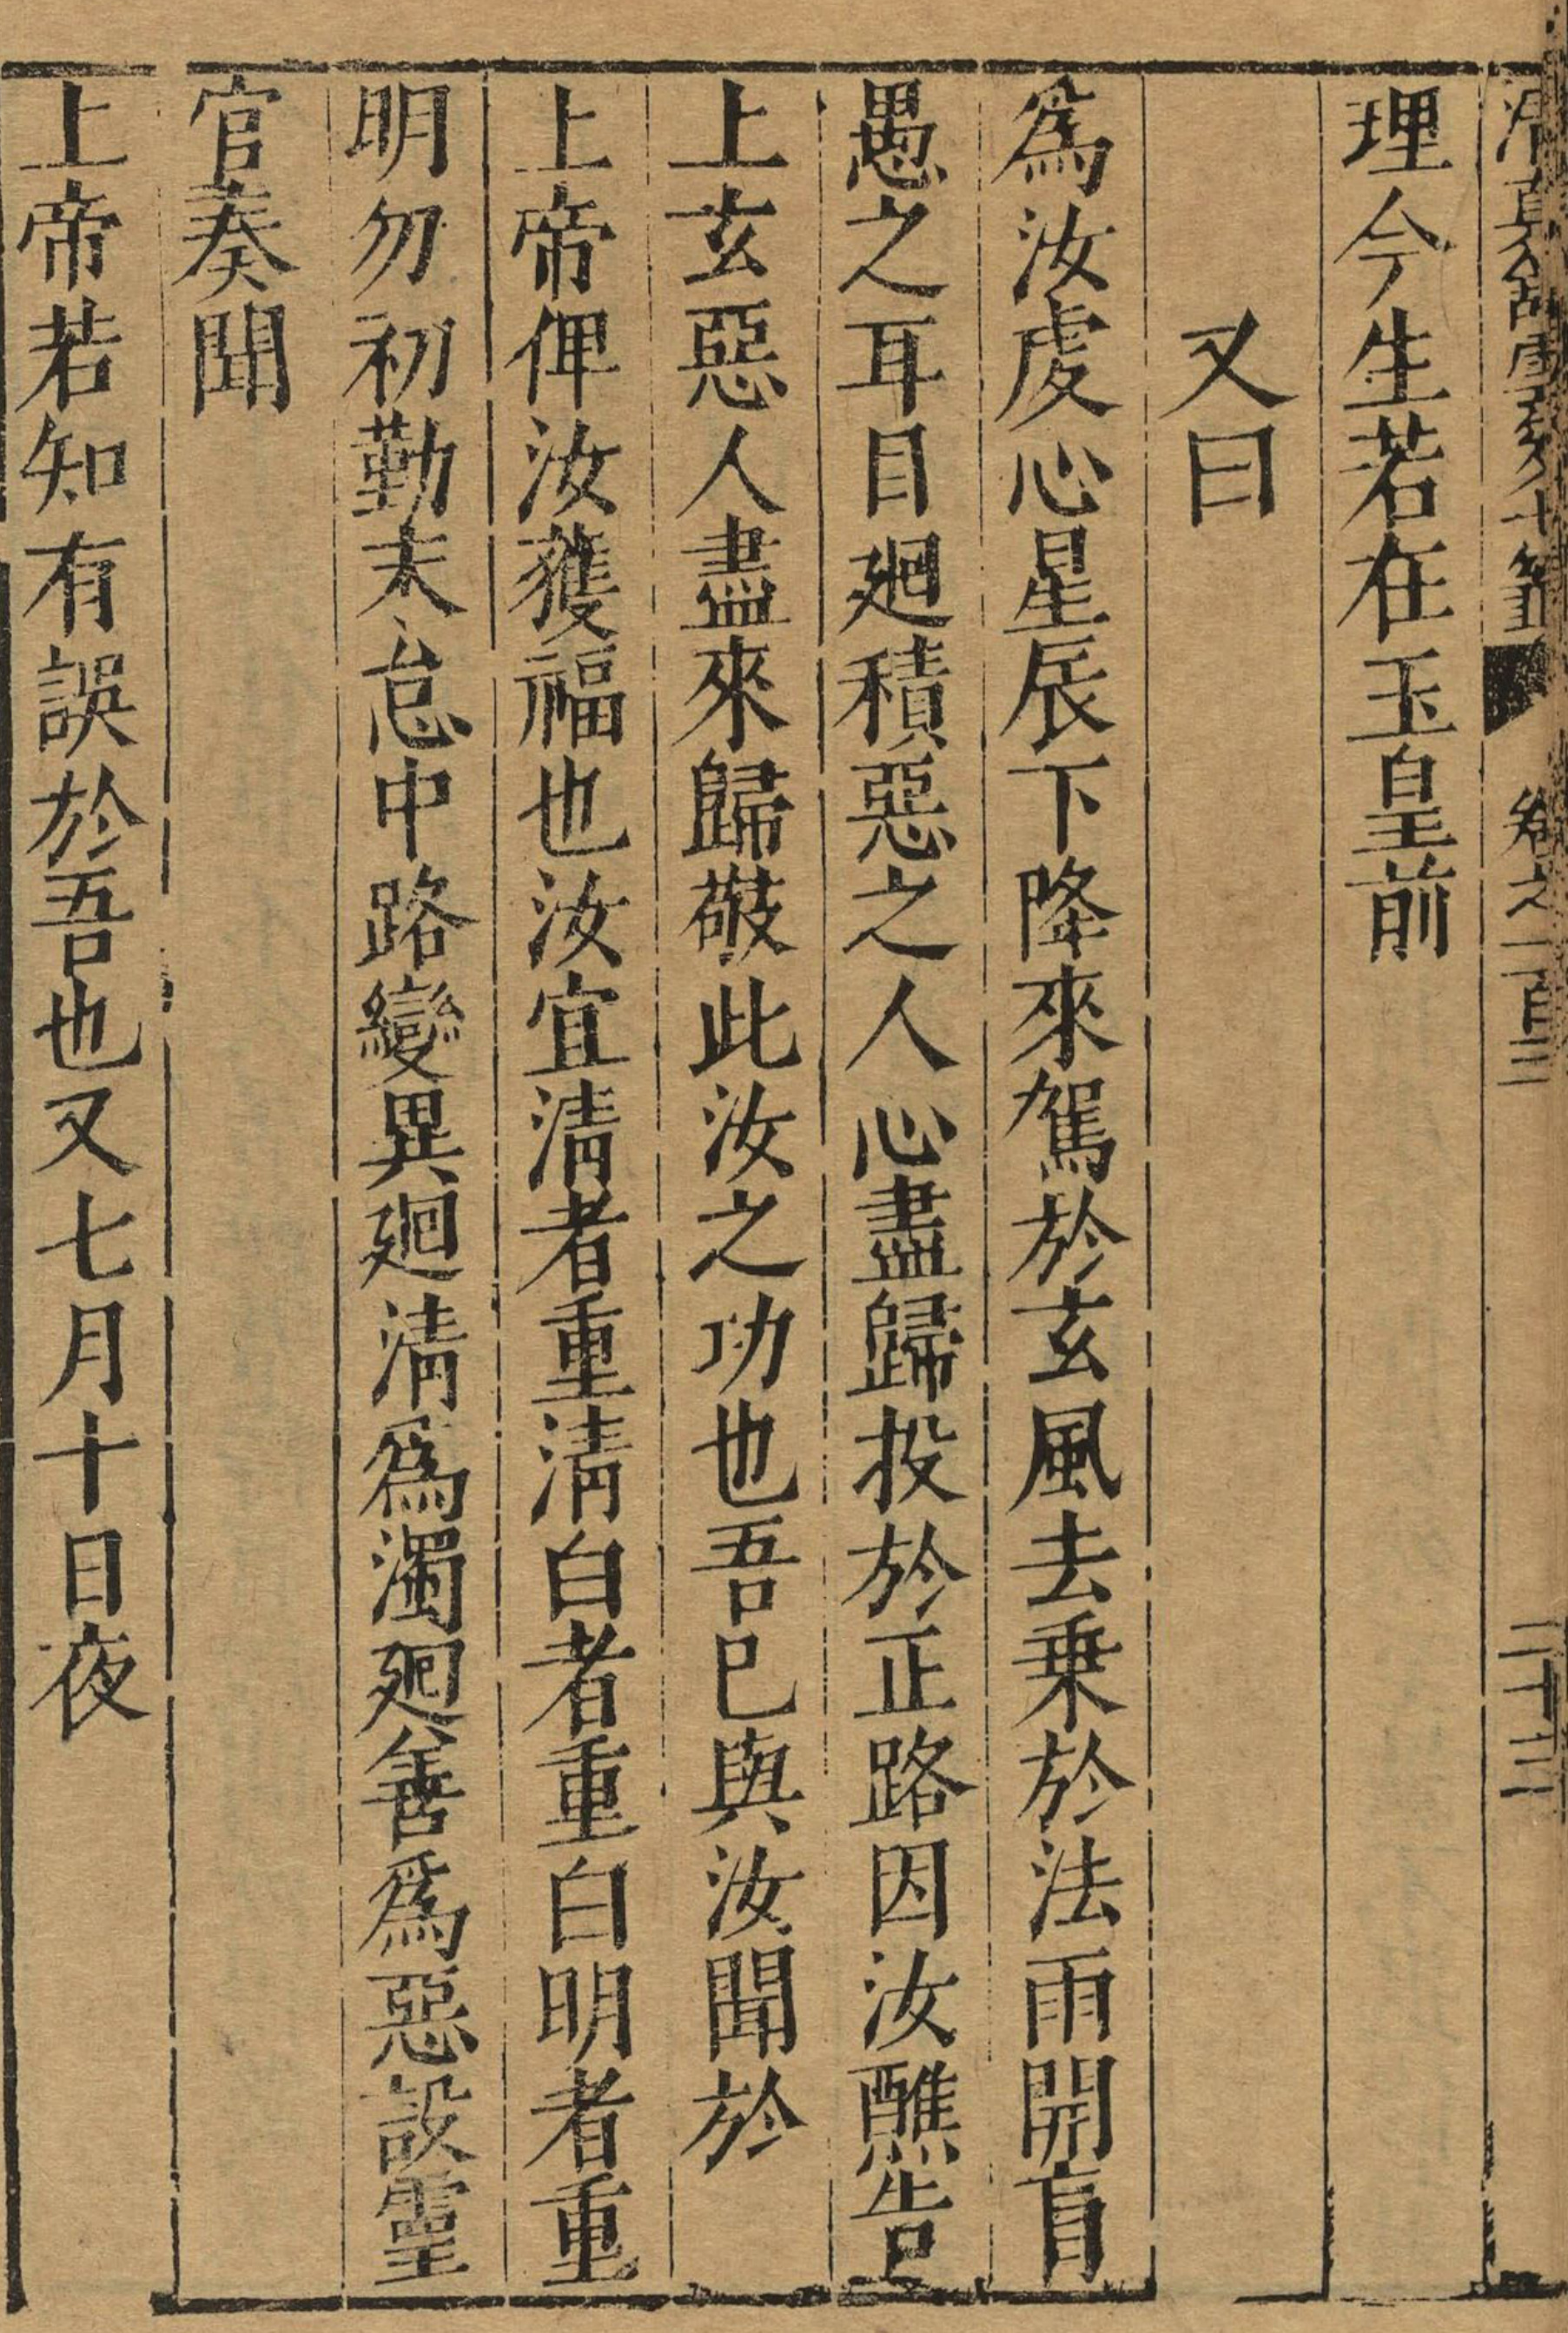 卷之一百三 二十三
理今生若在玉皇前
又曰
爲汝虔心星辰下降來駕於玄風去乗於法雨開盲
愚之耳目廻積惡之人心盡歸投於正路因汝醮告
上玄惡人盡來歸敬此汝之功也吾已與汝聞於
上帝俾汝獲福也汝宜清者重清白者重白明者重
明勿初勤末怠中路變異廻清爲濁廻善爲惡設靈
官奏聞
上帝若知有誤於吾也又七月十日夜